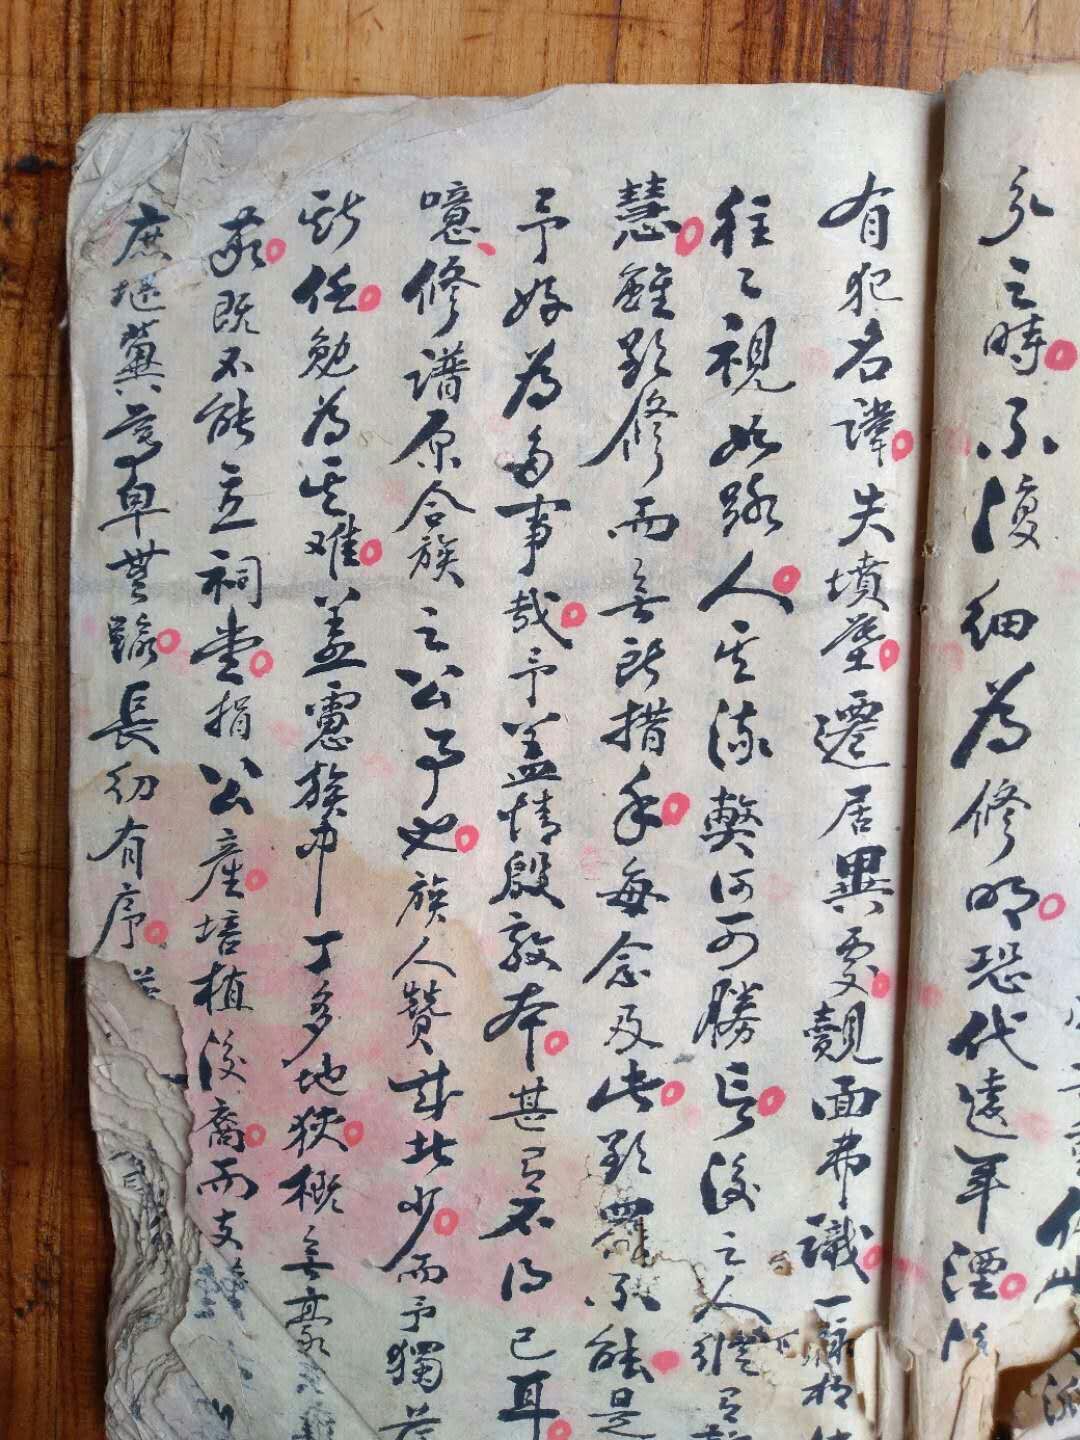 之時不復細為修明恐代遠年湮
有犯名諱失墳塋遷居異處覿面弗識一
往々視如路人其流弊何可勝言後之人
慧雖欲修而無所措手每念及此欲罷不能是
予好為多事哉予蓋情殷敦本甚有不得已耳
噫修譜原合族之公事也族人贊成者少而予獨
斯任勉為其难蓋慮族中丁多地狹概無豪
敬既不能立祠堂捐公產培植後裔而支
庶堪冀尊卑無踰長幼有序